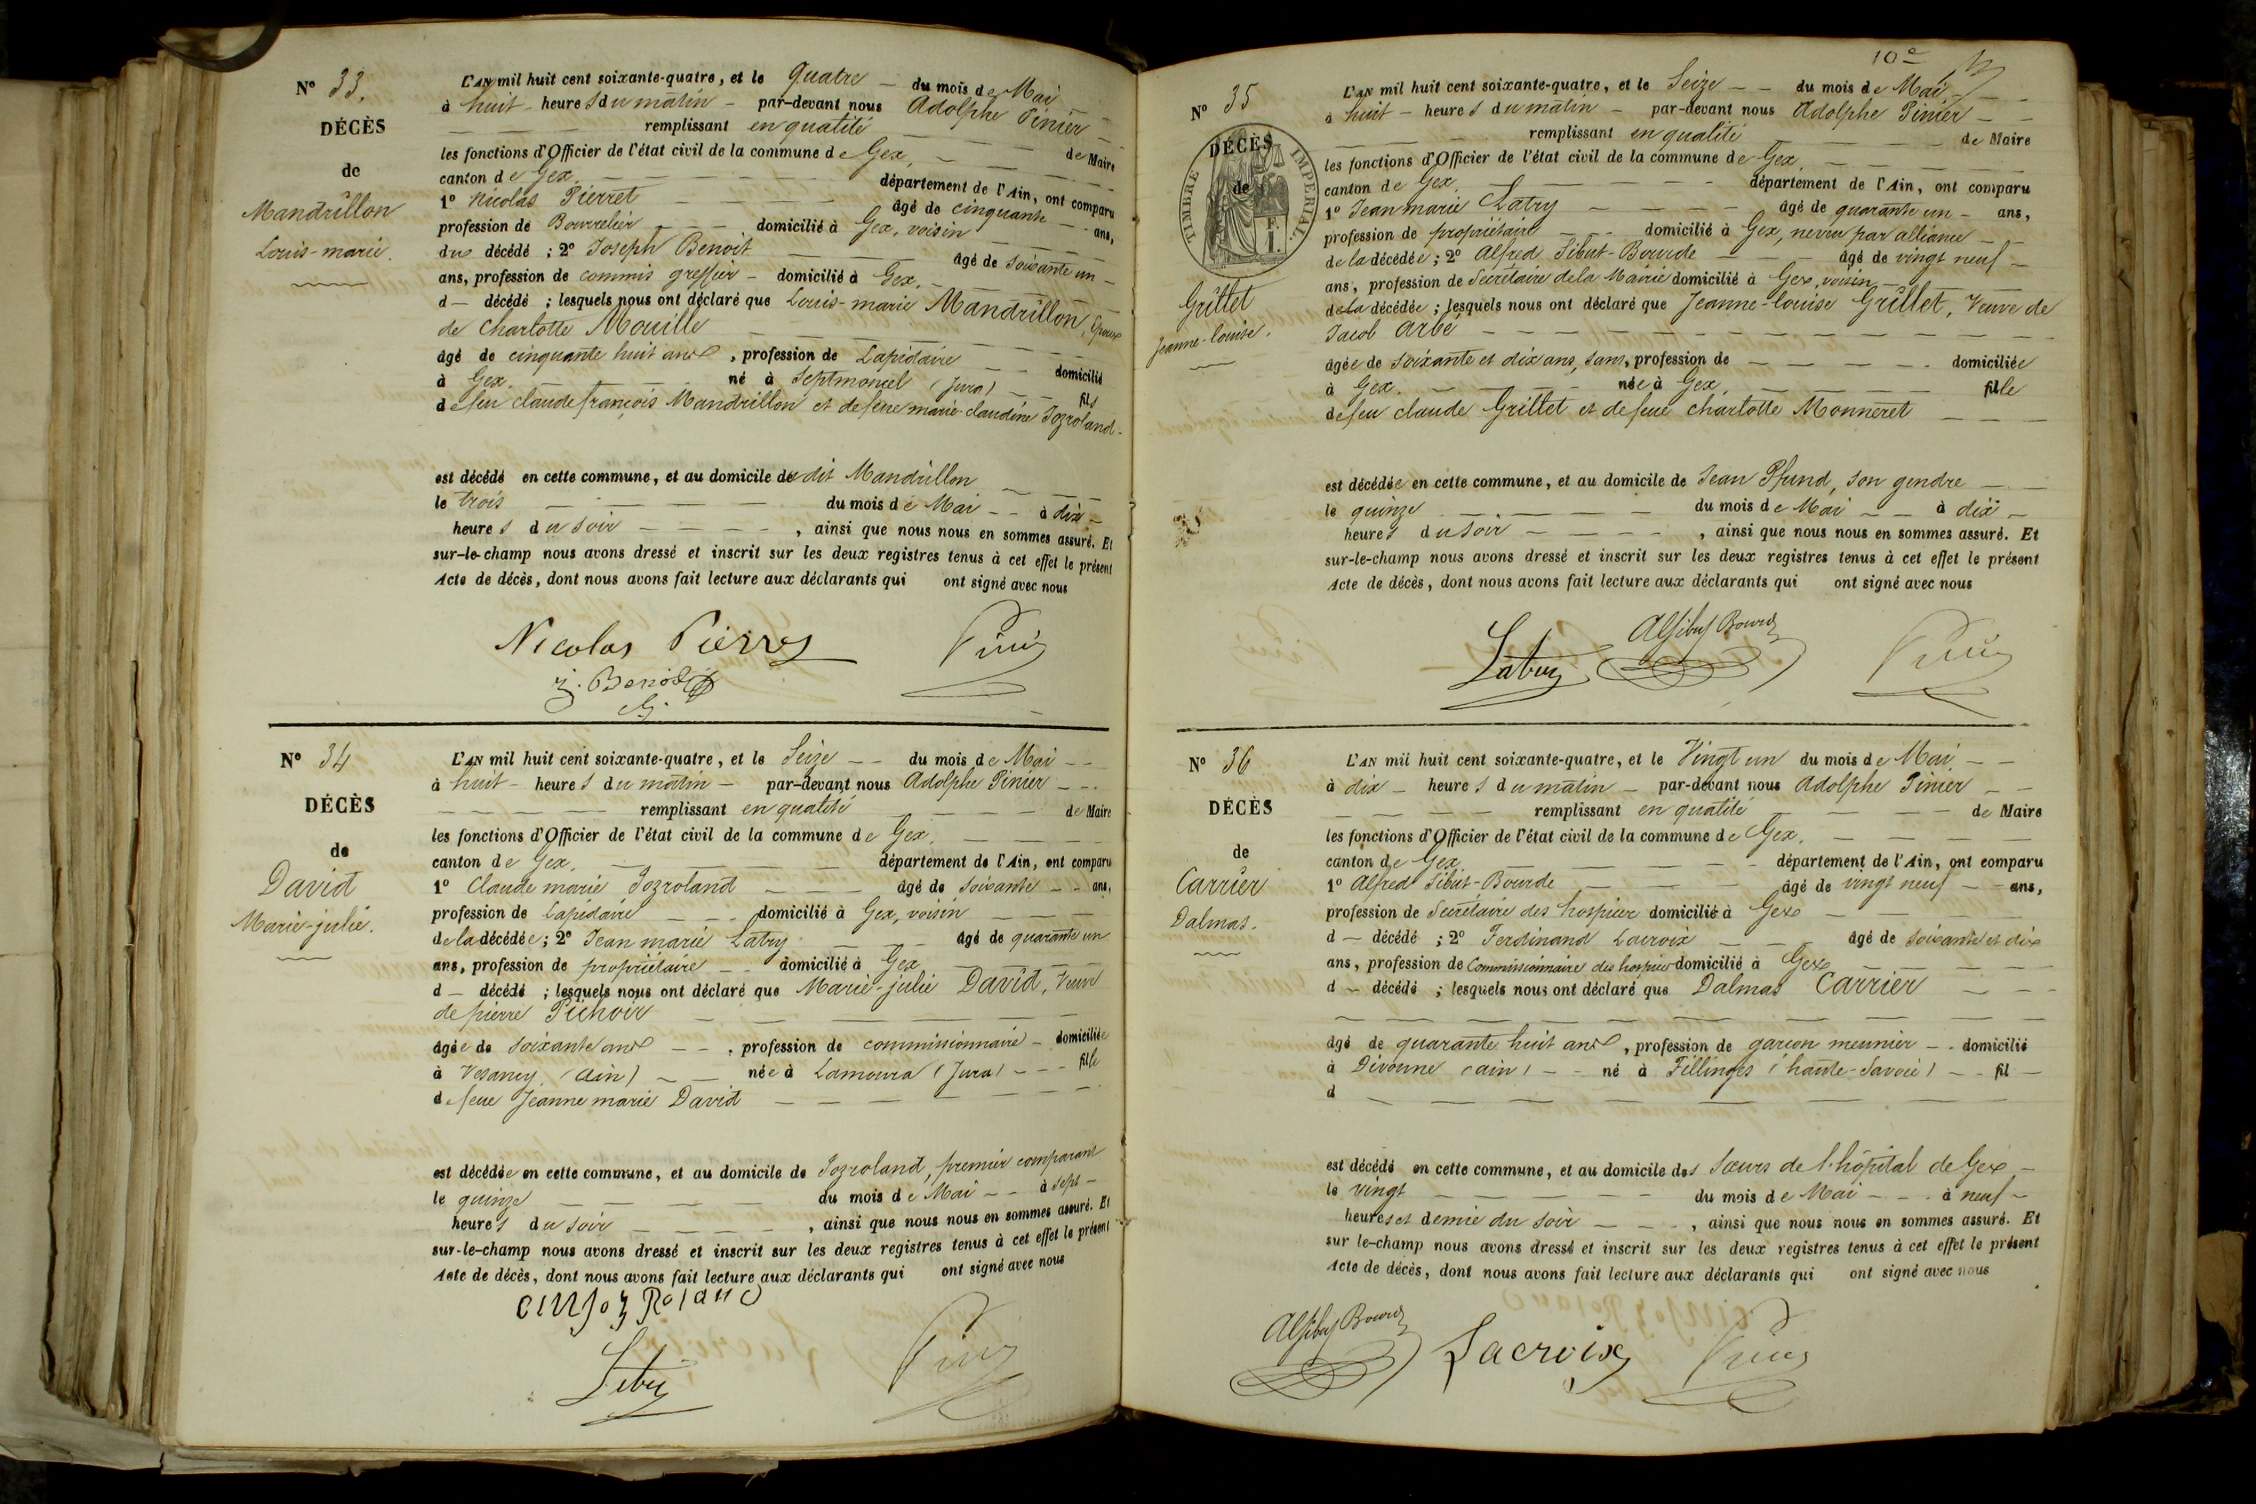 Nº 33.
DÉCÈS
de
Mandrillon
Louis-marie.
L'AN mil huit cent soixante-quatre, et le Quatre du mois de Mai
à huit heures du matin par-devant nous Adolphe Pinier
remplissant en qualité de Maire
les fonctions d'Officier de l'état civil de la commune de Gex,
canton de Gex. département de l'Ain, ont comparu
1º Nicolas Pierret âgé de cinquante ans,
profession de Bourrelier domicilié à Gex, voisin
du décédé ; 2º Joseph Benoit âgé de soixante un
ans, profession de commis greffier domicilié à Gex.
d décédé ; lesquels nous ont déclaré que Louis-marie Mandrillon, Epoux
de Charlotte Mouille
âgé de cinquante huit ans, profession de Lapidaire domicilié
à Gex. né à Septmoncel (Jura) fils
de feu claude françois Mandrillon et de feue marie claudine Jozroland
est décédé en cette commune, et au domicile du dit Mandrillon
le trois du mois de Mai à dix
heures du soir, ainsi que nous nous en sommes assuré. Et
sur-le-champ nous avons dressé et inscrit sur les deux registres tenus à cet effet le présent
Acte de décès, dont nous avons fait lecture aux déclarants qui ont signé avec nous
Nicolas Pierret Pinier
J. Benoit
Nº 34
DÉCÈS
de
David
Marie-julie.
L'AN mil huit cent soixante-quatre, et le Seize du mois de Mai
à huit heures du matin par-devant nous Adolphe Pinier
remplissant en qualité de Maire
les fonctions d'Officier de l'état civil de la commune de Gex.
canton de Gex. département de l'Ain, ont comparu
1º Claude marie Jozroland âgé de soixante ans,
profession de Lapidaire domicilié à Gex, voisin
de la décédée ; 2º Jean marie Latry âgé de quarante un
ans, profession de propriétaire domicilié à Gex
d décédé ; lesquels nous ont déclaré que Marie-julie David, Veuve
de pierre Pichoir
âgée de soixante ans, profession de commissionnaire domiciliée
à Vesancy. (Ain) née à Lamoura (Jura) fille
de feue Jeanne marie David
est décédée en cette commune, et au domicile de Jozroland, premier comparant
le quinze du mois de Mai à sept
heures du soir, ainsi que nous nous en sommes assuré. Et
sur-le-champ nous avons dressé et inscrit sur les deux registres tenus à cet effet le présent
Acte de décès, dont nous avons fait lecture aux déclarants qui ont signé avec nous
Latry Pinier
10e
Nº 35
DÉCÈS
de
TIMBRE IMPERIAL
Grillet
Jeanne-louise.
L'AN mil huit cent soixante-quatre, et le Seize du mois de Mai
à huit heures du matin par-devant nous Adolphe Pinier
remplissant en qualité de Maire
les fonctions d'Officier de l'état civil de la commune de Gex
canton de Gex. département de l'Ain, ont comparu
1º Jean marie Latry âgé de quarante un ans,
profession de propriétaire domicilié à Gex, neveu par alliance
de la décédée ; 2º Alfred Sibut-Bourde âgé de vingt neuf
ans, profession de Secrétaire de la Mairie domicilié à Gex, voisin
de la décédée ; lesquels nous ont déclaré que Jeanne-louise Grillet, Veuve de
Jacob Arbé
âgée de soixante et dix ans, sans, profession de domiciliée
à Gex. née à Gex, fille
de feu claude Grillet et de feue charlotte Monneret
est décédée en cette commune, et au domicile de Jean Pfund, son gendre
le quinze du mois de Mai à dix
heures du soir, ainsi que nous nous en sommes assuré. Et
sur-le-champ nous avons dressé et inscrit sur les deux registres tenus à cet effet le présent
Acte de décès, dont nous avons fait lecture aux déclarants qui ont signé avec nous
Latry Alf Sibut Bourde Pinier
Nº 36
DÉCÈS
de
Carrier
Dalmas.
L'AN mil huit cent soixante-quatre, et le Vingt un du mois de Mai
à dix heures du matin par-devant nous Adolphe Pinier
remplissant en qualité de Maire
les fonctions d'Officier de l'état civil de la commune de Gex.
canton de Gex département de l'Ain, ont comparu
1º Alfred Sibut-Bourde âgé de vingt neuf ans,
profession de Secrétaire des hospices domicilié à Gex
d décédé ; 2º Ferdinand Lacroix âgé de soixante et dix
ans, profession de Commissionnaire des hospices domicilié à Gex
d décédé ; lesquels nous ont déclaré que Dalmas Carrier
âgé de quarante huit ans, profession de garçon meunier domicilié
à Divonne (ain) né à Fillinges (haute-Savoie) fil
d
est décédé en cette commune, et au domicile des Sœurs de l'hôpital de Gex
le vingt du mois de Mai à neuf
heures et demie du soir, ainsi que nous nous en sommes assuré. Et
sur le-champ nous avons dressé et inscrit sur les deux registres tenus à cet effet le présent
Acte de décès, dont nous avons fait lecture aux déclarants qui ont signé avec nous
Alf Sibut Bourde Lacroix Pinier